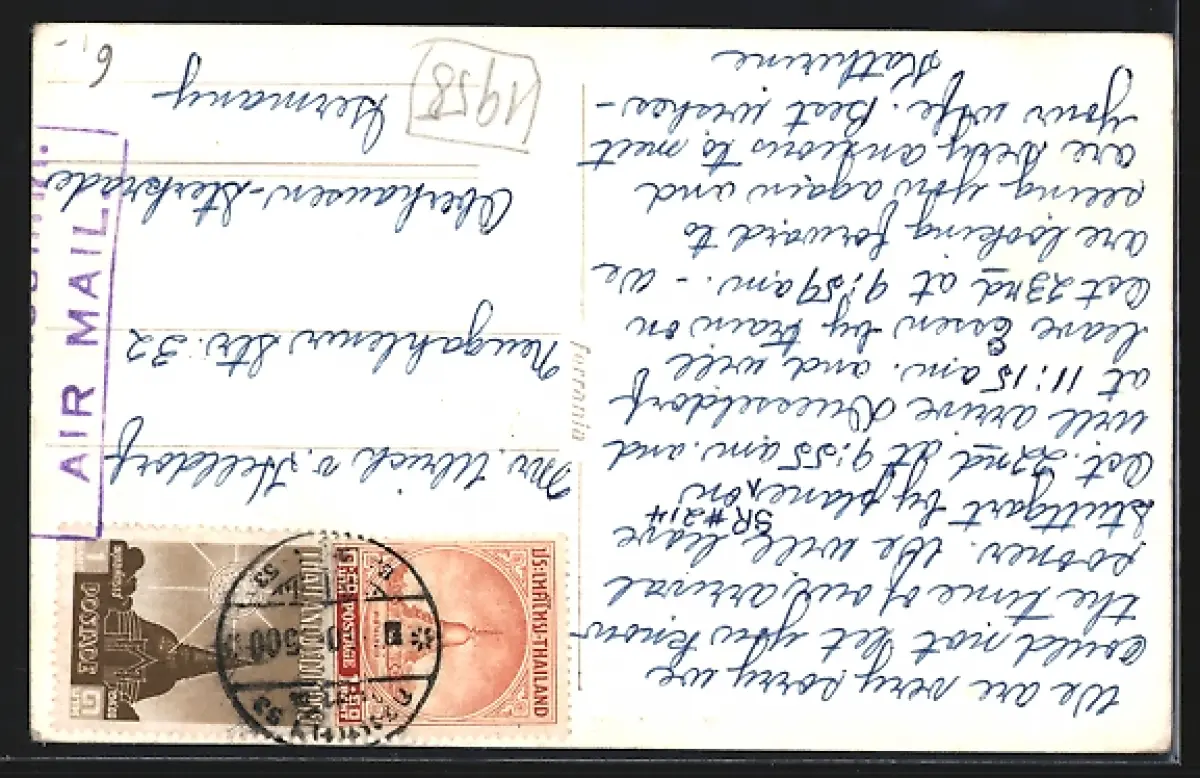 We are very sorry we
could not let you know
the time of our arrival
sooner. We will leave
SR #214
Stuttgart by plane, on
Oct. 22nd at 9:55 am. and
will arrive Duesseldorf
at 11:15 am. and will
leave Essen by train on
Oct 23rd at 9:59 am. - We
are looking forward to
seeing you again and
are very anxious to meet
your wife. Best wishes -
Katherine
Ferrania
Mr. Ulrich v. Helldorf
Neugahlener Str. 32
Oberhausen-Sterkrade
Germany
1958
6,-
AIR MAIL.
ประเทศไทย-THAILAND
POSTAGE
THAILAND
POSTAGE
53
53